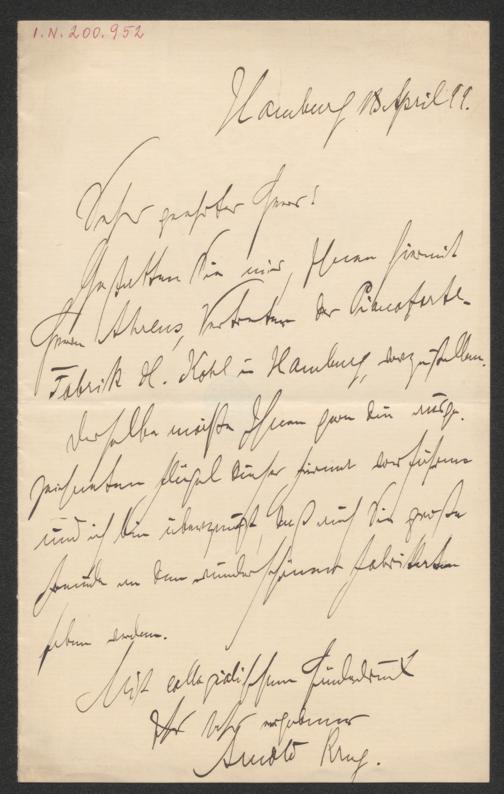 I.N. 200.952
Hamburg 18. April 99.
Sehr geehrter Herr!
Gestatten Sie mir, Ihnen hiermit
Herrn Ahrens, Vertreter der Pianoforte-
Fabrik H. Kohl in Hamburg, vorzustellen.
Derselbe möchte Ihnen gern die ausge-
zeichneten Flügel dieser Firma vorführen
und ich bin überzeugt, daß auch Sie große
Freude an den wunderschönen Fabrikaten
haben werden.
Mit collegialischem Händedruck
Ihr sehr ergebener
Arnold Krug.